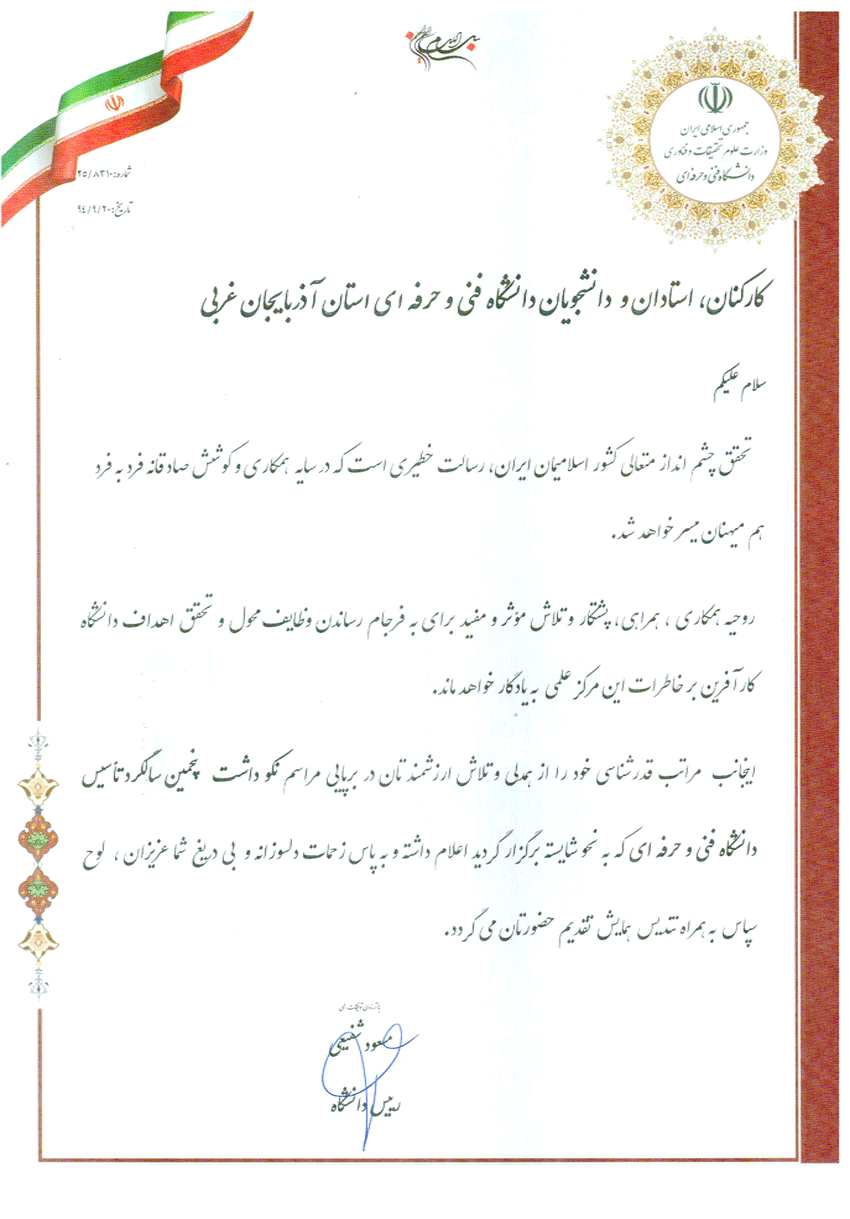 بسم الله الرحمن الرحیم
جمهوری اسلامی ایران
وزارت علوم تحقیقات و فناوری
دانشگاه فنی و حرفه ای
شماره: ۲۵/۸۳۱۰
تاریخ: ۹۴/۹/۲۰
کارکنان، استادان و دانشجویان دانشگاه فنی و حرفه ای استان آذربایجان غربی
سلام علیکم
تحقق چشم انداز متعالی کشور اسلامیمان ایران، رسالت خطیری است که در سایه همکاری و کوشش صادقانه فرد به فرد
هم میهنان میسر خواهد شد.
روحیه همکاری ، همراهی، پشتکار و تلاش مؤثر و مفید برای به فرجام رساندن وظایف محول و تحقق اهداف دانشگاه
کارآفرین بر خاطرات این مرکز علمی به یادگار خواهد ماند.
اینجانب مراتب قدرشناسی خود را از همدلی و تلاش ارزشمندتان در برپایی مراسم نکو داشت پنجمین سالگرد تأسیس
دانشگاه فنی و حرفه ای که به نحو شایسته برگزار گردید اعلام داشته و به پاس زحمات دلسوزانه و بی دریغ شما عزیزان ، لوح
سپاس به همراه تندیس همایش تقدیم حضورتان می گردد.
با آرزوی توفیقات الهی
مسعود شفیعی
رییس دانشگاه